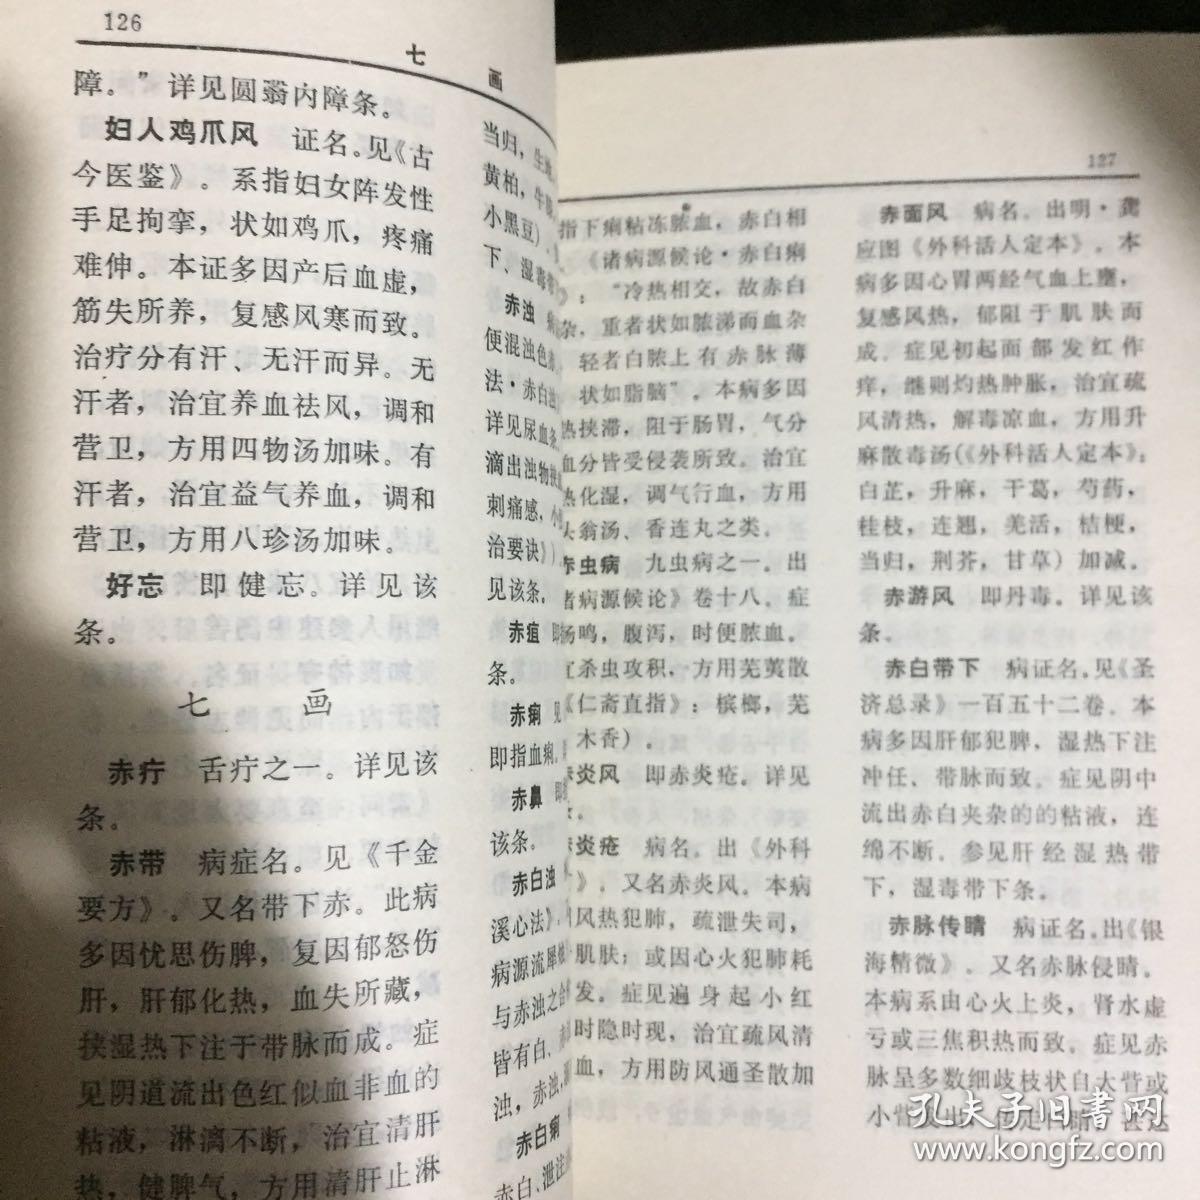 126
七 画
障。”详见圆翳内障条。
妇人鸡爪风 证名。见《古
今医鉴》。系指妇女阵发性
手足拘挛，状如鸡爪，疼痛
难伸。本证多因产后血虚，
筋失所养，复感风寒而致。
治疗分有汗、无汗而异。无
汗者，治宜养血祛风，调和
营卫，方用四物汤加味。有
汗者，治宜益气养血，调和
营卫，方用八珍汤加味。
好忘 即健忘。详见该
条。
七 画
赤疔 舌疔之一。详见该
条。
赤带 病症名。见《千金
要方》。又名带下赤。此病
多因忧思伤脾，复因郁怒伤
肝，肝郁化热，血失所藏，
挟湿热下注于带脉而成。症
见阴道流出色红似血非血的
粘液，淋漓不断，治宜清肝
热，健脾气，方用清肝止淋
当归，生
黄柏，牛
小黑豆）
下、湿毒带
赤浊
便混浊色赤
法·赤白浊
详见尿血条
滴出浊物
刺痛感，小
治要诀》）
见该条。
赤疽 即
条。
赤痢 见
即指血痢。
赤鼻 即
该条。
赤白浊
溪心法》，
病源流犀
与赤浊之合
皆有白、
浊，赤浊，
赤白痢
赤白、泄注
127
指下痢粘冻脓血，赤白相
《诸病源候论·赤白痢
》：“冷热相交，故赤白
杂，重者状如脓涕而血杂
轻者白脓上有赤脉薄
状如脂脑”。本病多因
热挟滞，阻于肠胃，气分
血分皆受侵袭所致。治宜
热化湿，调气行血，方用
头翁汤、香连丸之类。
赤虫病 九虫病之一。出
诸病源候论》卷十八。症
肠鸣，腹泻，时便脓血。
宜杀虫攻积，方用芜荑散
《仁斋直指》：槟榔，芜
木香）。
赤炎风 即赤炎疮。详见
赤炎疮 病名。出《外科
》。又名赤炎风。本病
风热犯肺，疏泄失司，
肌肤；或因心火犯肺耗
发。症见遍身起小红
时隐时现，治宜疏风清
血，方用防风通圣散加
赤面风 病名。出明·龚
应图《外科活人定本》。本
病多因心胃两经气血上壅，
复感风热，郁阻于肌肤而
成。症见初起面部发红作
痒，继则灼热肿胀，治宜疏
风清热，解毒凉血，方用升
麻散毒汤（《外科活人定本》：
白芷，升麻，干葛，芍药，
桂枝，连翘，羌活，桔梗，
当归，荆芥，甘草）加减。
赤游风 即丹毒。详见该
条。
赤白带下 病证名。见《圣
济总录》一百五十二卷。本
病多因肝郁犯脾，湿热下注
冲任、带脉而致。症见阴中
流出赤白夹杂的的粘液，连
绵不断。参见肝经湿热带
下，湿毒带下条。
赤脉传睛 病证名。出《银
海精微》。又名赤脉侵睛。
本病系由心火上炎，肾水虚
亏或三焦积热而致。症见赤
脉呈多数细歧枝状自大眥或
小眥发出
孔夫子旧书网
www.kongfz.com